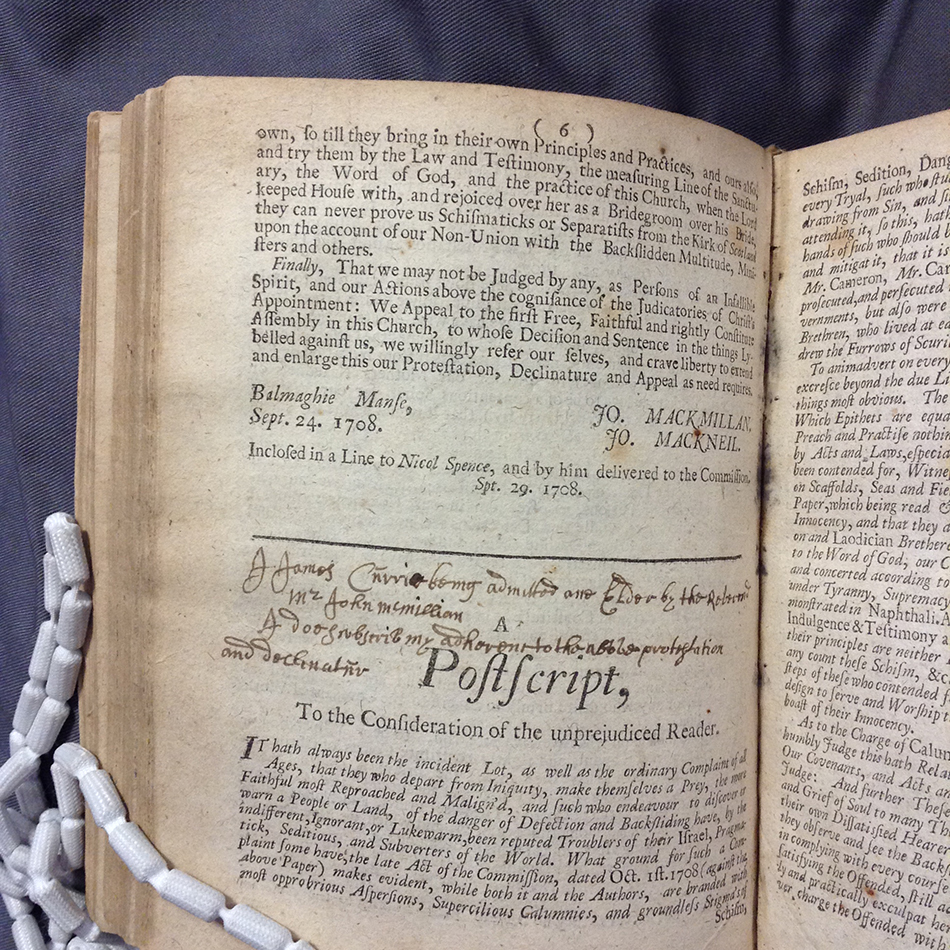 ( 6 )
own, ſo till they bring in their own Principles and Practices, and ours alſo,
and try them by the Law and Teſtimony, the meaſuring Line of the Sanctu-
ary, the Word of God, and the practice of this Church, when the Lord
keeped Houſe with, and rejoiced over her as a Bridegroom over his Bride,
they can never prove us Schiſmaticks or Separatiſts from the Kirk of Scotland
upon the account of our Non-Union with the Backſlidden Multitude, Mini-
ſters and others.
Finally, That we may not be Judged by any, as Perſons of an Infallible
Spirit, and our Actions above the cogniſance of the Judicatories of Chriſt's
Appointment: We Appeal to the firſt Free, Faithful and rightly Conſtitute
Aſſembly in this Church, to whoſe Deciſion and Sentence in the things Ly-
belled againſt us, we willingly refer our ſelves, and crave liberty to extend
and enlarge this our Proteſtation, Declinature and Appeal as need requires.
Balmaghie Manſe,
Sept. 24. 1708.
JO. MACKMILLAN.
JO. MACKNEIL.
Incloſed in a Line to Nicol Spence, and by him delivered to the Commiſſion.
Spt. 29. 1708.
I James Currie being admitted one Elder by the
Mr John mcmillian
I doe ſubscrib my adherent to the noble protestation
and declinatur
A
Poſtſcript,
To the Conſideration of the unprejudiced Reader.
IT hath always been the incident Lot, as well as the ordinary Complaint of all
Ages, that they who depart from Iniquity, make themſelves a Prey, the more
Faithful moſt Reproached and Malign'd, and ſuch who endeavour to diſcover or
warn a People or Land, of the danger of Defection and Backſliding have, by the
indifferent, Ignorant, or Lukewarm, been reputed Troublers of their Iſrael, Pragma-
tick, Seditious, and Subverters of the World. What ground for ſuch a Com-
plaint ſome have, the late Act of the Commiſſion, dated Oct. 1ſt. 1708 (againſt the
above Paper) makes evident, while both it and the Authors, are branded with
moſt opprobrious Aſperſions, Supercilious Calumnies, and groundleſs Stigma's of
Schiſm,
Schiſm, Sedition,
every Tryal, ſuch who
drawing from Sin, and
attending it, ſo this,
hands of ſuch who ſhould
and mitigat it, that it is
Mr. Cameron, Mr.
proſecuted, and perſecuted
vernments, but alſo were
Brethren, who lived at
drew the Furrows of
To animadvert on every
excreſce beyond the due
things moſt obvious. The
Which Epithets are
Preach and Practiſe
by Acts and Laws,
been contended for,
on Scaffolds, Seas and
Paper, which being read
Innocency, and that they
on and Laodician
to the Word of God; our
and concerted according to
under Tyranny, Supremacy
monſtrated in Naphthali.
Indulgence & Teſtimony
their principles are neither
any count theſe Schiſm, &c
ſteps of theſe who contended
deſign to ſerve and Worſhip
boaſt of their Innocency.
As to the Charge of
humbly Judge this hath
Our Covenants, and Acts
Judge: And further
and Grief of Soul to many
their own Diſſatisfied
they obſerve and ſee the
in complying with every
ſatisfying the Offended,
ly and practically exculpat
ver, charge the Offended